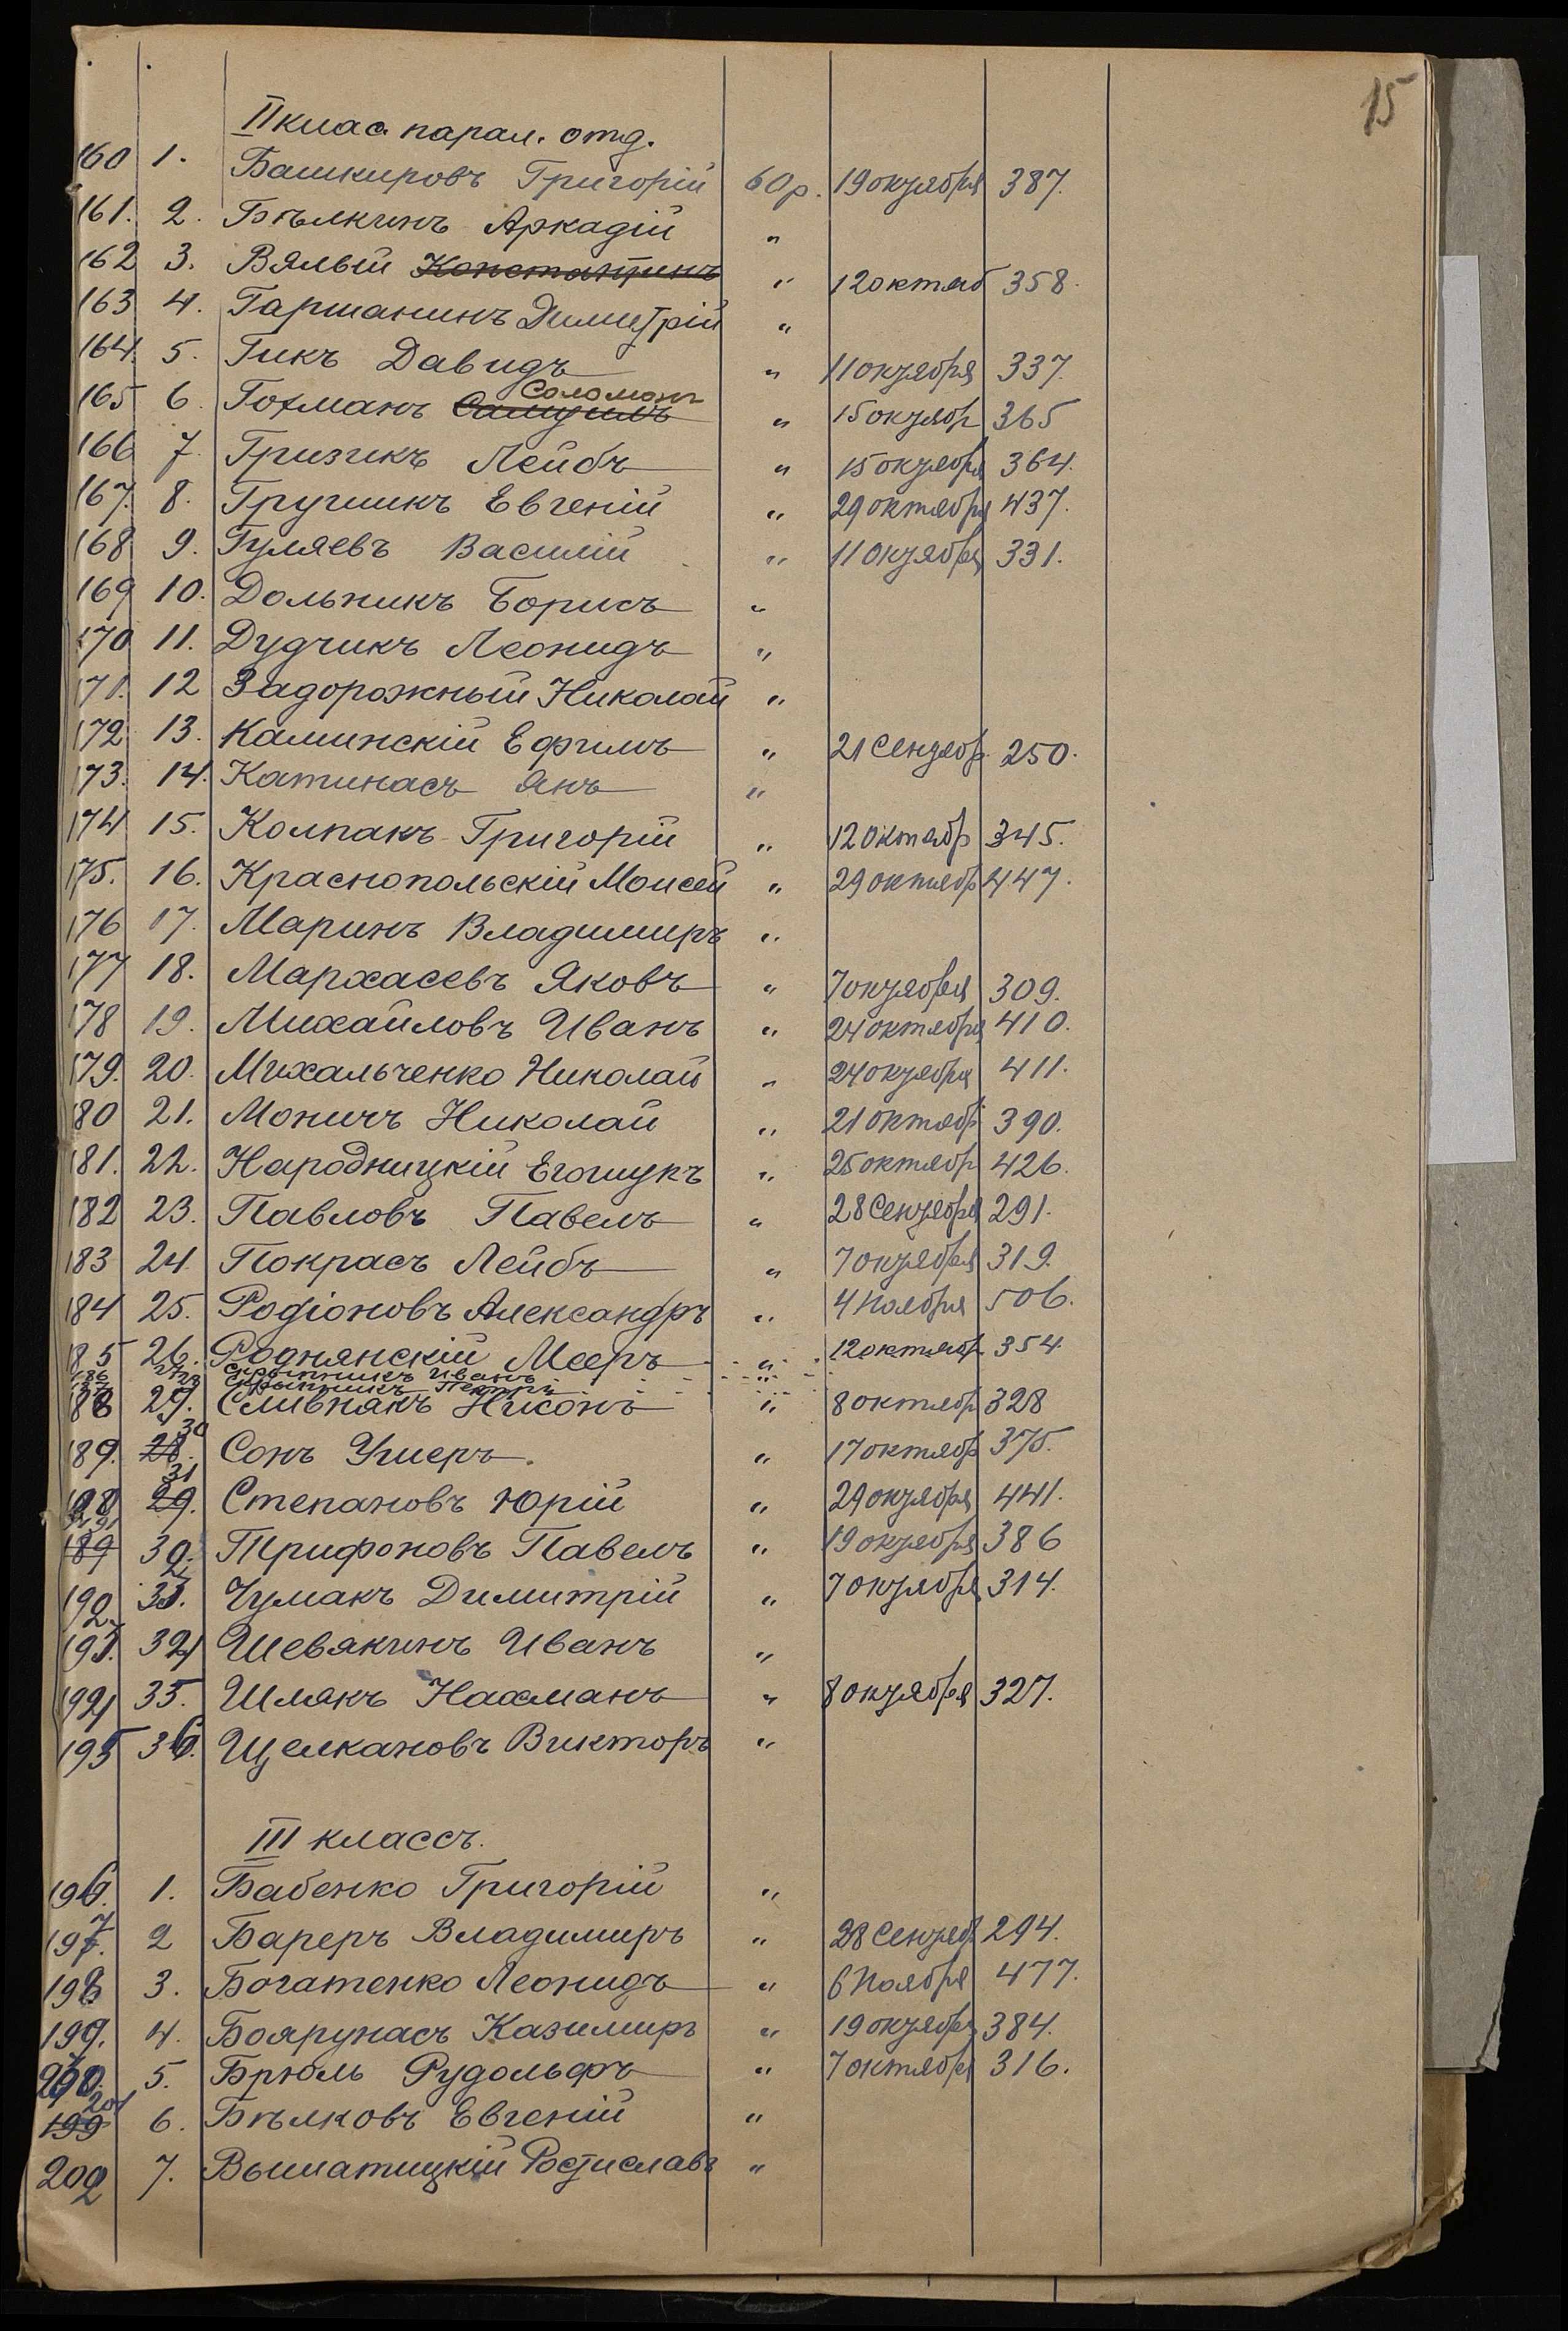 15
II клас. парал. отд.
160 1. Башкировъ Григорій 60 р. 19 октября 387.
161. 2. Бѣлкинъ Аркадій "
162 3. Вялый Константинъ " 12 октяб 358.
163 4. Гаршанинъ Димитрій "
164. 5. Гикъ Давидъ " 11 октября 337.
165 6. Гохманъ Самуилъ Соломонъ " 15 октябр 365
166 7. Гризикъ Лейбъ " 15 октября 364.
167. 8. Евгеній " 29 октября 437.
168 9. Гуляевъ Василій " 11 октября 331.
169 10. Дольникъ Борисъ "
170 11. Дудчикъ Леонидъ "
171. 12 Задорожный Николай "
172 13. Каминскій Ефимъ " 21 Сентябр. 250.
173. 14. Катинасъ Янъ "
174 15. Колпакъ Григорій " 12 октябр 345.
175. 16. Краснопольскій Моисей " 29 октябр 447.
176 17. Маринъ Владимиръ "
177 18. Мархасевъ Яковъ " 7 октября 309.
178 19. Михайловъ Иванъ " 24 октября 410.
179. 20. Михальченко Николай " 24 октября 411.
180 21. Моничъ Николай " 21 октябр 390.
181. 22. Народницкій " 25 октябр 426.
182 23. Павловъ Павелъ " 28 Сентября 291.
183 24. Покрасъ Лейбъ " 7 октября 319.
184 25. Родіоновъ Александръ " 4 Ноября 506.
185 26. Роднянскій Мееръ " 12 октябр 354.
186 27 Скрыпникъ Иванъ "
187 28 Скрыпникъ Петръ "
188 29. Сливнякъ Нисонъ " 8 октябр 328
189. 28. 30 Сонъ Ушеръ. " 17 октябр 375.
190 29. 31 Степановъ Юрій " 29 октября 441.
189 191 32. Трифоновъ Павелъ " 19 октября 386
192 33. Чумакъ Димитрій " 7 октября 314.
193. 34 Шевякинъ Иванъ "
194 35. Шлякъ Нахманъ " 8 октября 327.
195 36. Щелкановъ Викторъ "
III классъ.
196. 1. Бабенко Григорій "
197. 2 Бареръ Владимиръ " 28 Сентяб 294.
198 3. Богатенко Леонидъ " 6 Ноября 477.
199. 4. Боярунасъ Казимиръ " 19 октябр 384.
200. 5. Брюль Рудольфъ " 7 октября 316.
199 201 6. Бѣлковъ Евгеній "
202 7. Вышатицкій Ростиславъ "